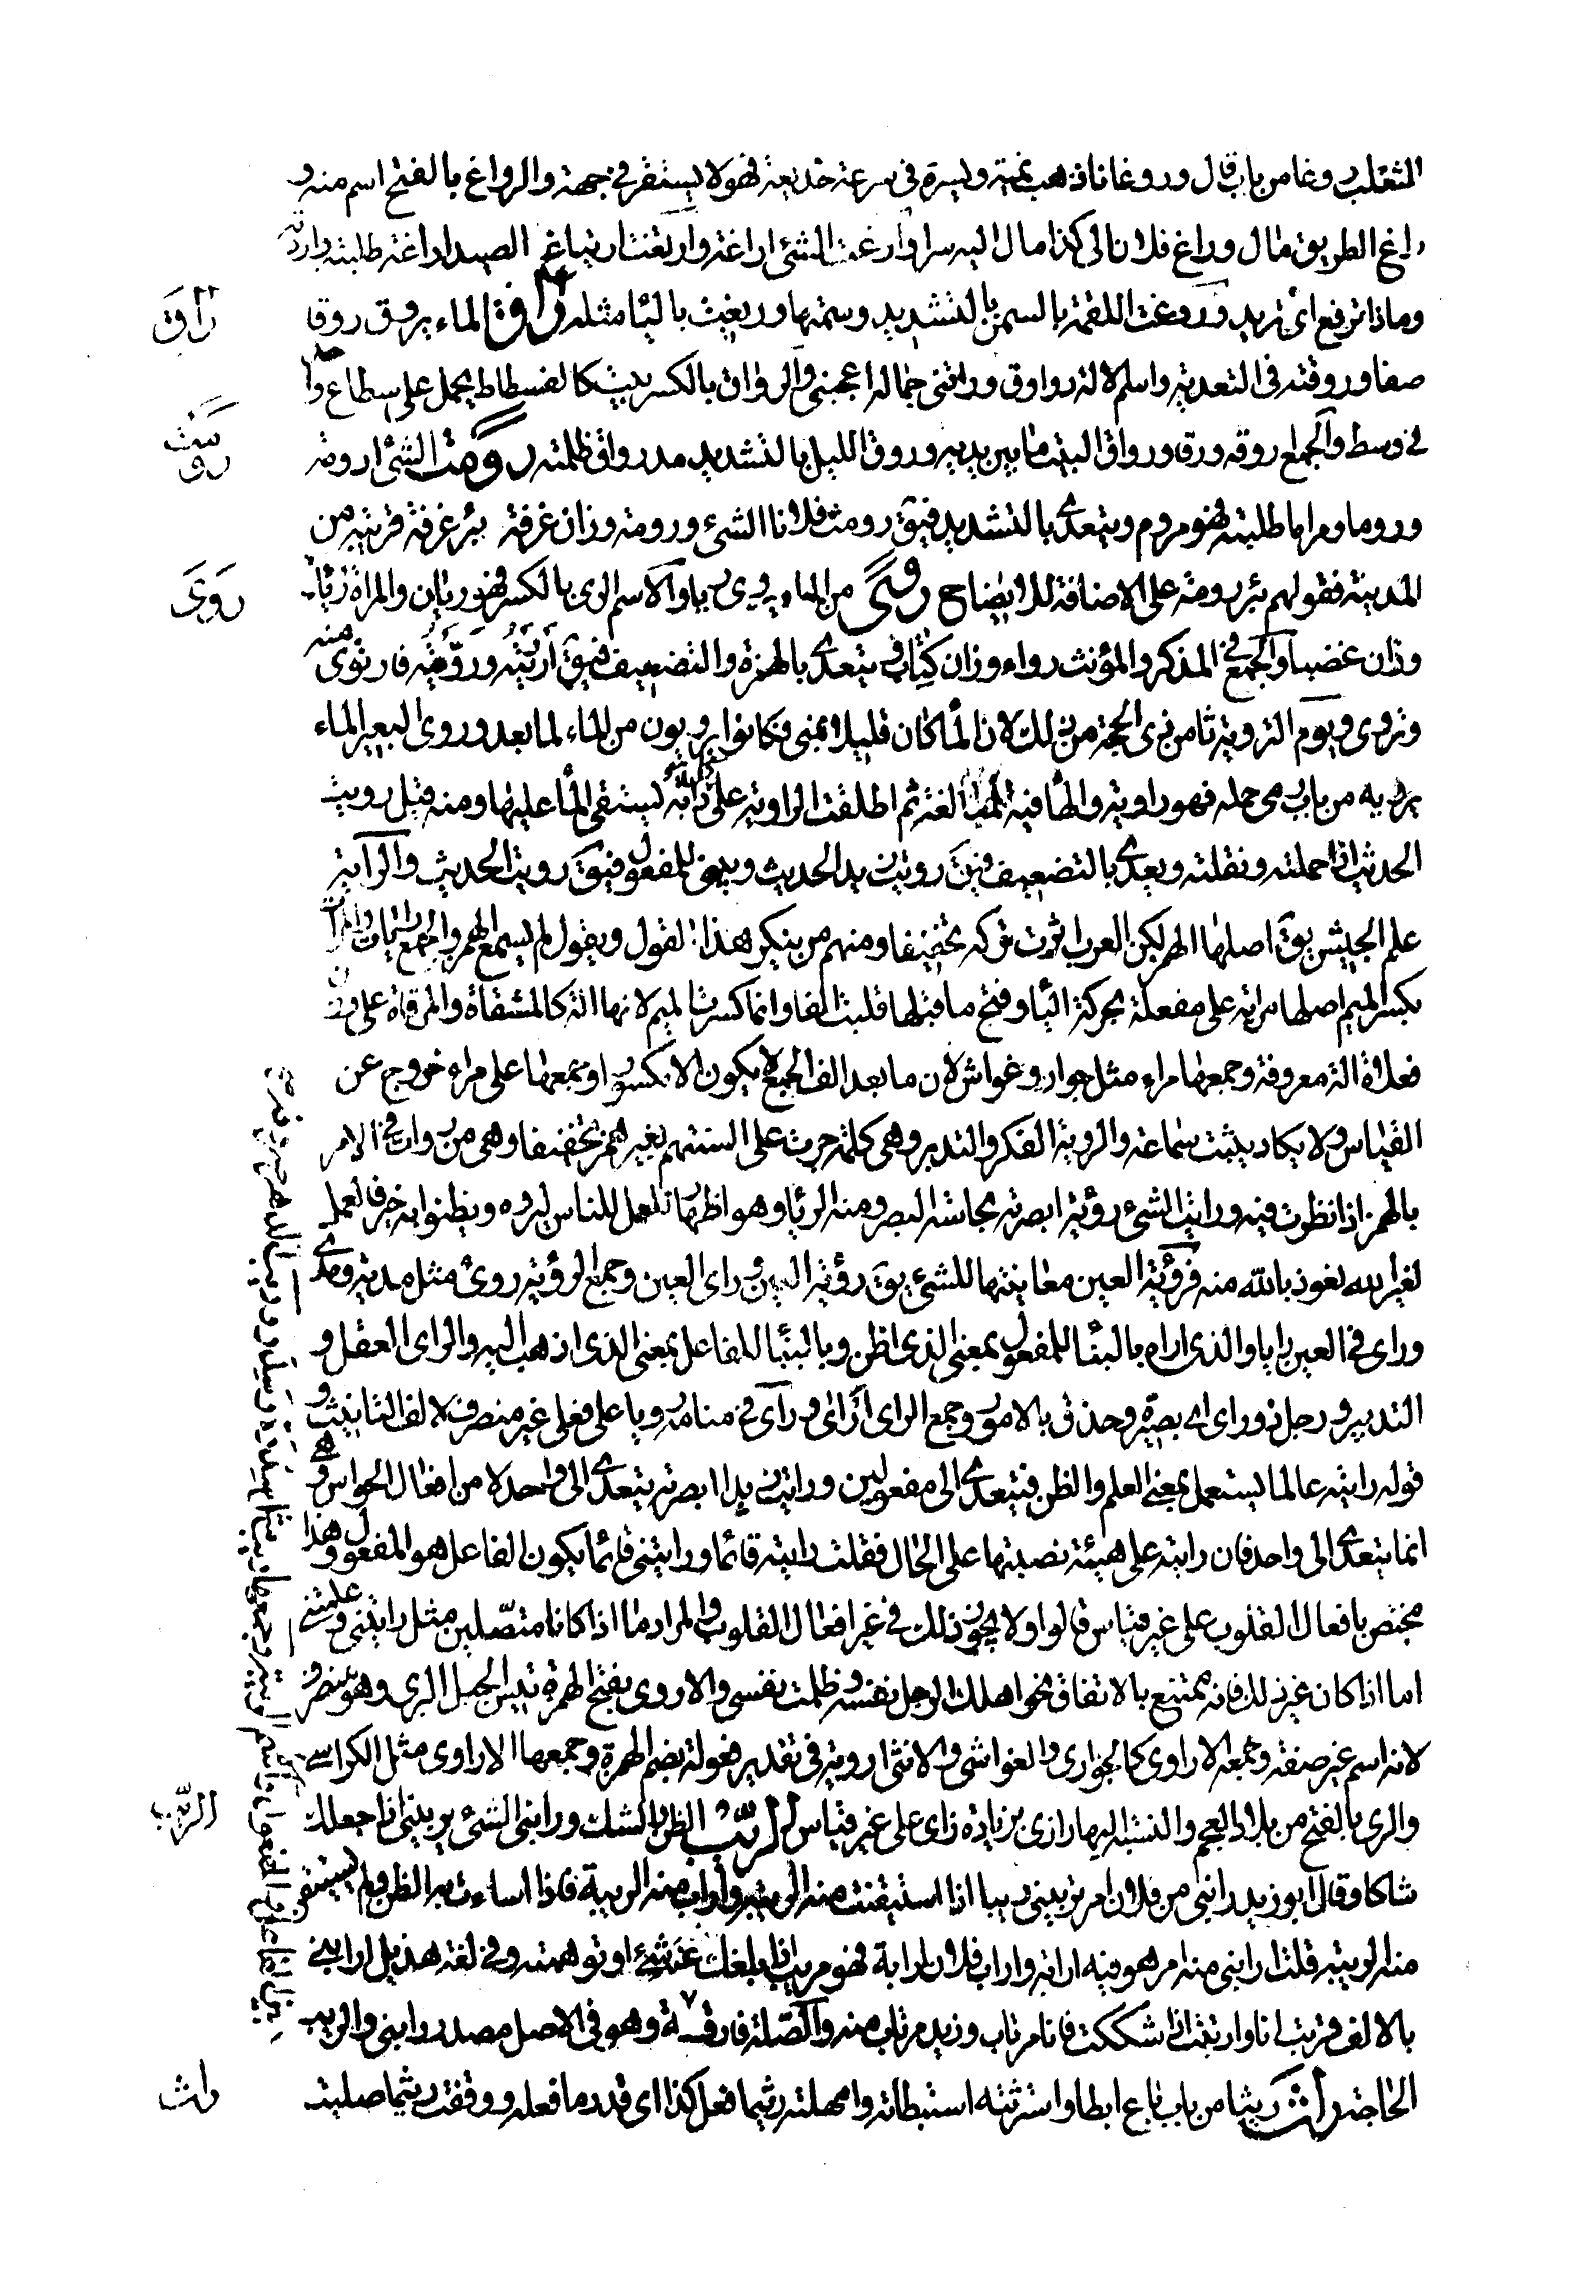 الثعلب روغا من باب قال وروغانا ذهب يمنة ويسرة في سرعة خديعة فهو لا يستقر في جهة والرواغ بالفتح اسم منه و
راغ الطريق مال وراغ فلان الى كذا مال اليه سرا وارغت الشئ اراغة وارتغت ارتياغ الصيد اراغة طلبته واردته
وماذا تريغ اى تريد وروغت اللقمة بالسمن بالتشديد دسمتها وريغت باليا مثله راق الماء يروق روقا
صفا وروقته فى التعدية واسم الالة راووق وراقنى جماله اعجبنى والرواق بالكسر بيت كالفسطاط يحمل على سطاع واحد
فى وسطه والجمع روقة ورواق البيت ما بين يديه وروق الليل بالتشديد مد رواق ظلمته رومت الشئ ارومه
روما ومراما طلبته فهو مروم ويتعدى بالتشديد فيق رومت فلانا الشئ ورومة وزان غرفة بئر غرفة قريبة من
المدينة فقولهم بئر رومة على الاضافة للايضاح روى من الماء يروى ريا والاسم الرى بالكسر فهو ريان والمراة ريا
وزان غضبى والجمع فى المذكر والمؤنث رواء وزان كتاب ويتعدى بالهمزة والتضعيف فيق ارويته ورويته فارتوى منه
وتروى ويوم التروية ثامن ذى الحجة من ذلك لان الماء كان قليلا بمنى فكانوا يرتوون من الماء لما بعد وروى البعير الماء
يرويه من باب رمى حمله فهو راوية والهاء فيه للمبالغة ثم اطلقت الراوية على كل دابة يستقى الماء عليها ومنه قيل رويت
الحديث اذا حملته ونقلته ويعدى بالتضعيف فيق رويت زيد الحديث ويبنى للمفعول فيق روينا الحديث والراية
علم الجيش يق اصلها الهمز لكن العرب اثرت تركه تخفيفا ومنهم من ينكر هذا القول ويقول لم يسمع الهمز والجمع رايات والمرآة
بكسر الميم اصلها مراية على مفعلة تحركت اليا وفتح ما قبلها قلبت الفا وانما كسرت الميم لانها الة كالمشقاة والمرقاة على وزن
فعلاة الة معروفة وجمعها مراء مثل جوار وغواش لان ما بعد الف الجمع لا يكون الا مكسورا وجمعها على مراء خروج عن
القياس ولا يكاد يثبت سماعه والروية الفكر والتدبر وهى كلمة جرت على السنتهم بغير همز تخفيفا وهى من روات فى الامر
بالهمز اذا نظرت فيه ورايت الشئ رؤية ابصرته بحاسة البصر ومنه الريا وهو اظهار العمل للناس ليروه ويظنوا به خيرا فالعمل
لغير الله نعوذ بالله منه فرؤية العين معاينتها للشئ يق رؤية العين وراى العين وجمع الرؤية روئ مثل مدية ومدى
وراى فى العين رايا والذى اراه بالبنا للمفعول بمعنى الذى اظن وبالبنا للفاعل بمعنى الذى اذهب اليه والراى العقل و
التدبير ورجل ذو راى اى بصيرة وحذق بالامور وجمع الراى اراى وراى فى منامه رويا على فعلى غير منصرف لالف التانيث و
قوله رايته عالما يستعمل بمعنى العلم والظن فيتعدى الى مفعولين ورايت زيدا ابصرته يتعدى الى واحد لا من افعال الحواس وهى
انما يتعدى الى واحد فان رايته على هيئة نصبتها على الحال فقلت رايته قائما ورايتنى قائما يكون الفاعل هو المفعول وهذا
مختص بافعال القلوب على غير قياس قالوا ولا يجوز ذلك فى غير افعال القلوب والمراد ما اذا كانا متصلين مثل رايتنى وعلمتنى
اما اذا كان غير ذلك فانه يمتنع بالاتفاق نحو اهلك الرجل نفسه وظلمت نفسى والاروى بفتح الهمزة تيس الجبل البرى وهو منصرف
لانه اسم غير صفة وجمعه الاراوى كالجوارى والغواشى والانثى اروية فى تقدير فعولة بضم الهمزة وجمعها الاراوى مثل الكراسى
والرى بالفتح من بلاد العجم والنسبة اليها رازى بزيادة زاى على غير قياس الريب الظن والشك ورابنى الشئ يريبنى اذا جعلك
شاكا وقال ابو زيد رابنى من فلان امر يريبنى ريبا اذا استيقنت منه الريبة وارابنى منه الريبة فاذا اسات به الظن ولم تستيقن
منه الريبة قلت ارابنى منه امر هو فيه ارابة واراب فلان ارابة فهو مريب اذا بلغك عنه شئ او توهمته وفى لغة هذيل ارابنى
بالالف فربت انا وارتبت اذا شككت فانا مرتاب وزيد مرتاب منه والصلة فارقة وهو فى الاصل مصدر رابنى والريب
الحاجة راث ريثا من باب باع ابطا واسترثته استبطاته وامهلته ريثما فعل كذا اى قدر ما فعله ووقفت ريثما صلينا
راق
رمت
روى
الريب
راث